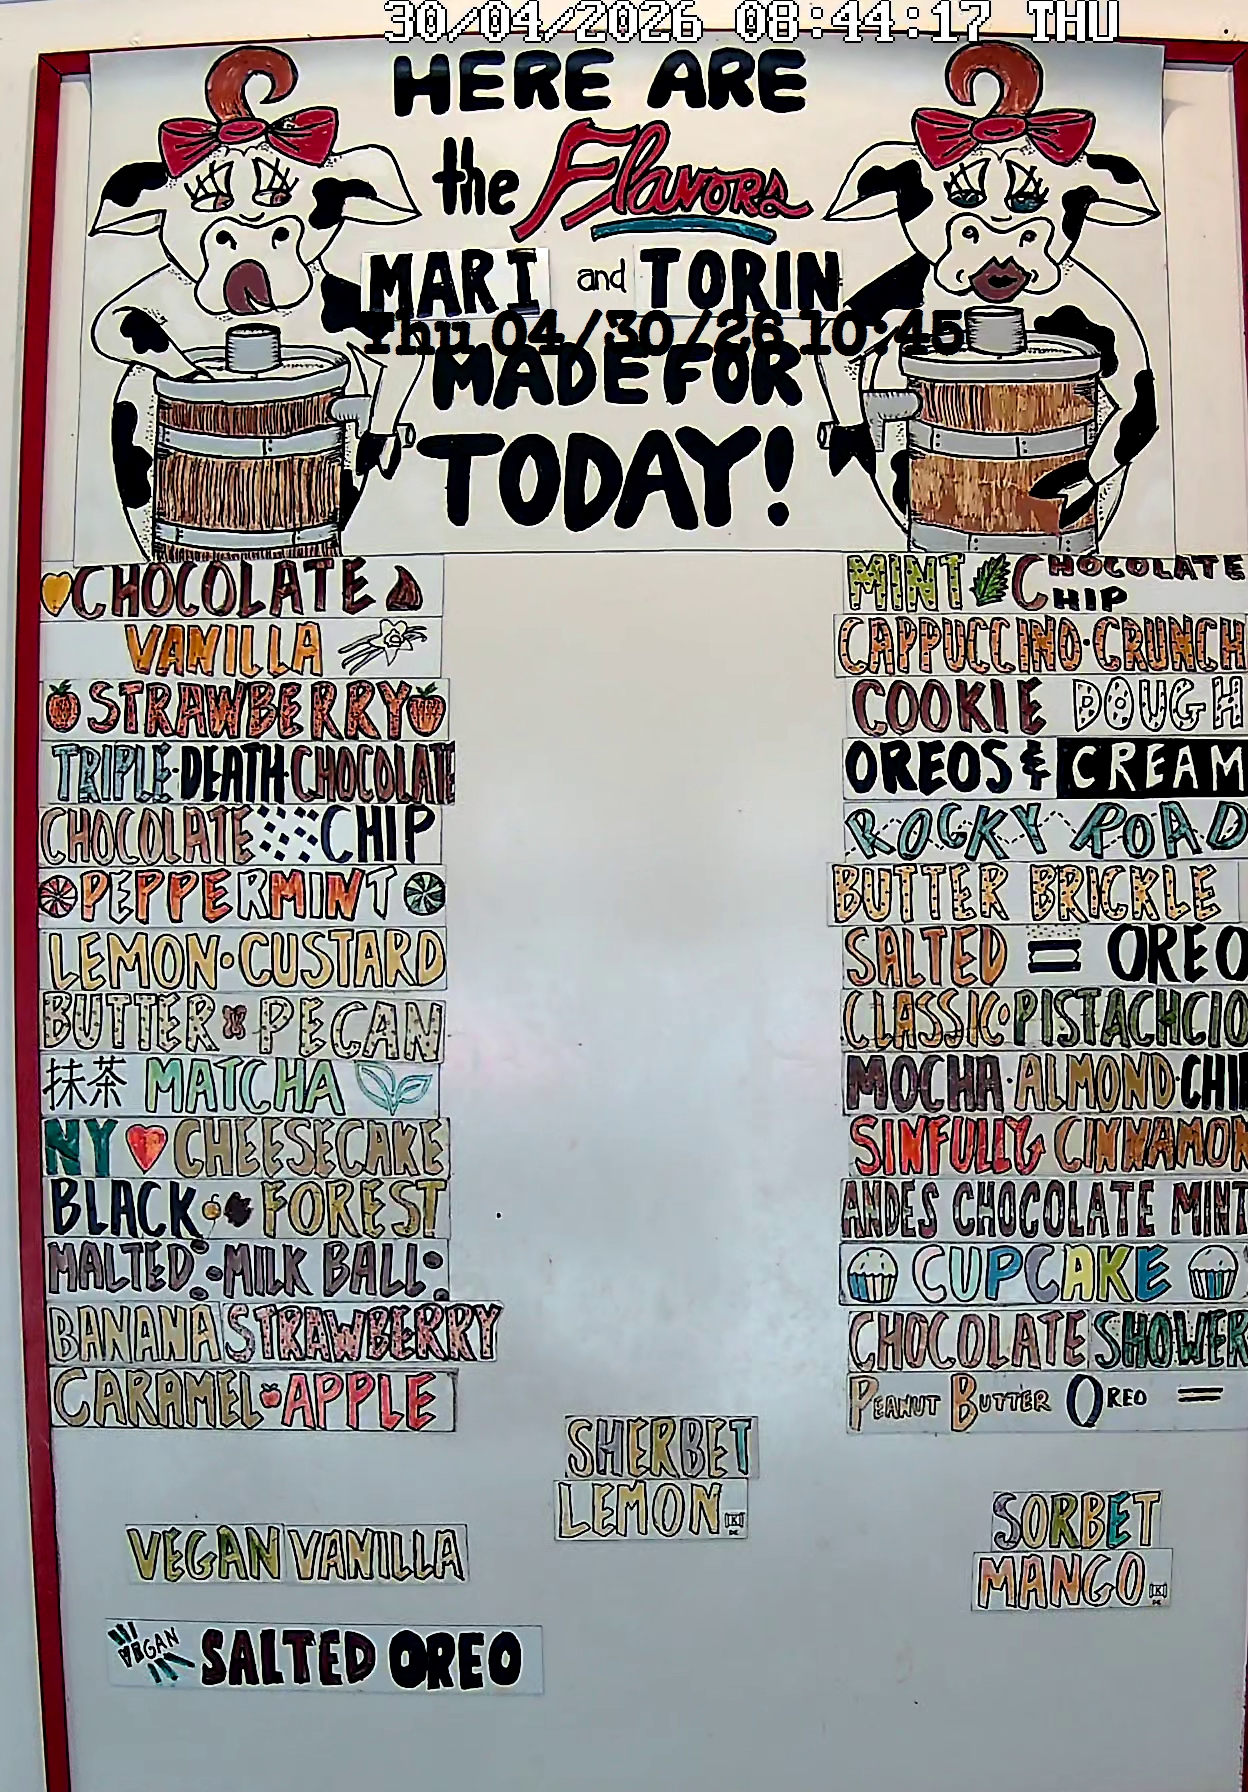 30/04/2026 08:44:17 THU
HERE ARE
the Flavors
MARI and TORIN
Thu 04/30/26 10:45
MADE FOR
TODAY!
CHOCOLATE
VANILLA
STRAWBERRY
TRIPLE·DEATH·CHOCOLATE
CHOCOLATE CHIP
PEPPERMINT
LEMON·CUSTARD
BUTTER PECAN
抹茶 MATCHA
NY CHEESECAKE
BLACK FOREST
MALTED MILK BALL
BANANA STRAWBERRY
CARAMEL APPLE
MINT CHOCOLATE CHIP
CAPPUCCINO·CRUNCH
COOKIE DOUGH
OREOS & CREAM
ROCKY ROAD
BUTTER BRICKLE
SALTED OREO
CLASSIC PISTACHCIO
MOCHA·ALMOND·CHI
SINFULLY CINNAMON
ANDES CHOCOLATE MINT
CUPCAKE
CHOCOLATE SHOWER
PEANUT BUTTER OREO
SHERBET
LEMON
SORBET
MANGO
VEGAN VANILLA
VEGAN SALTED OREO